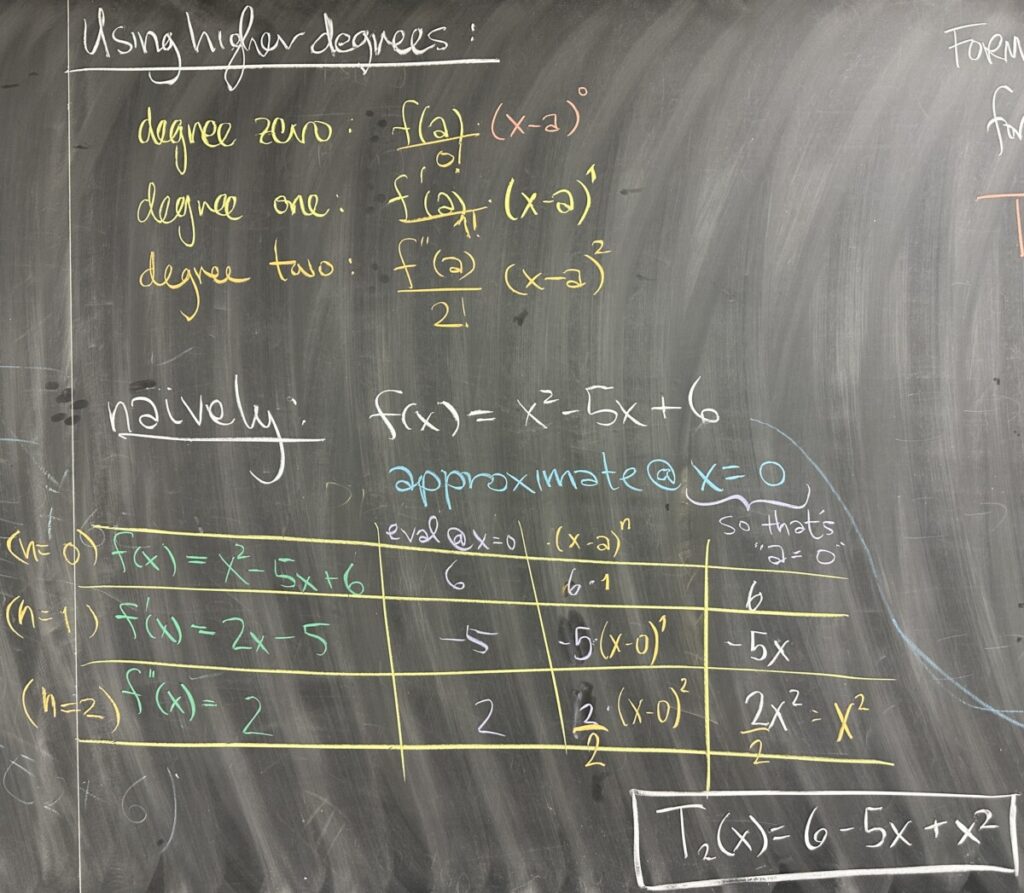 Using higher degrees:
degree zero: f(a)/0! · (x-a)⁰
degree one: f'(a)/1! · (x-a)¹
degree two: f"(a)/2! (x-a)²
naively: f(x) = x²-5x+6
approximate @ x=0
so that's
"a=0"
eval @ x=0 ·(x-a)ⁿ
(n=0) f(x) = x²-5x+6 6 6·1 6
(n=1) f'(x) = 2x-5 -5 -5·(x-0)¹ -5x
(n=2) f"(x) = 2 2 2/2·(x-0)² 2x²/2 = x²
T₂(x) = 6-5x+x²
FORM
for
T